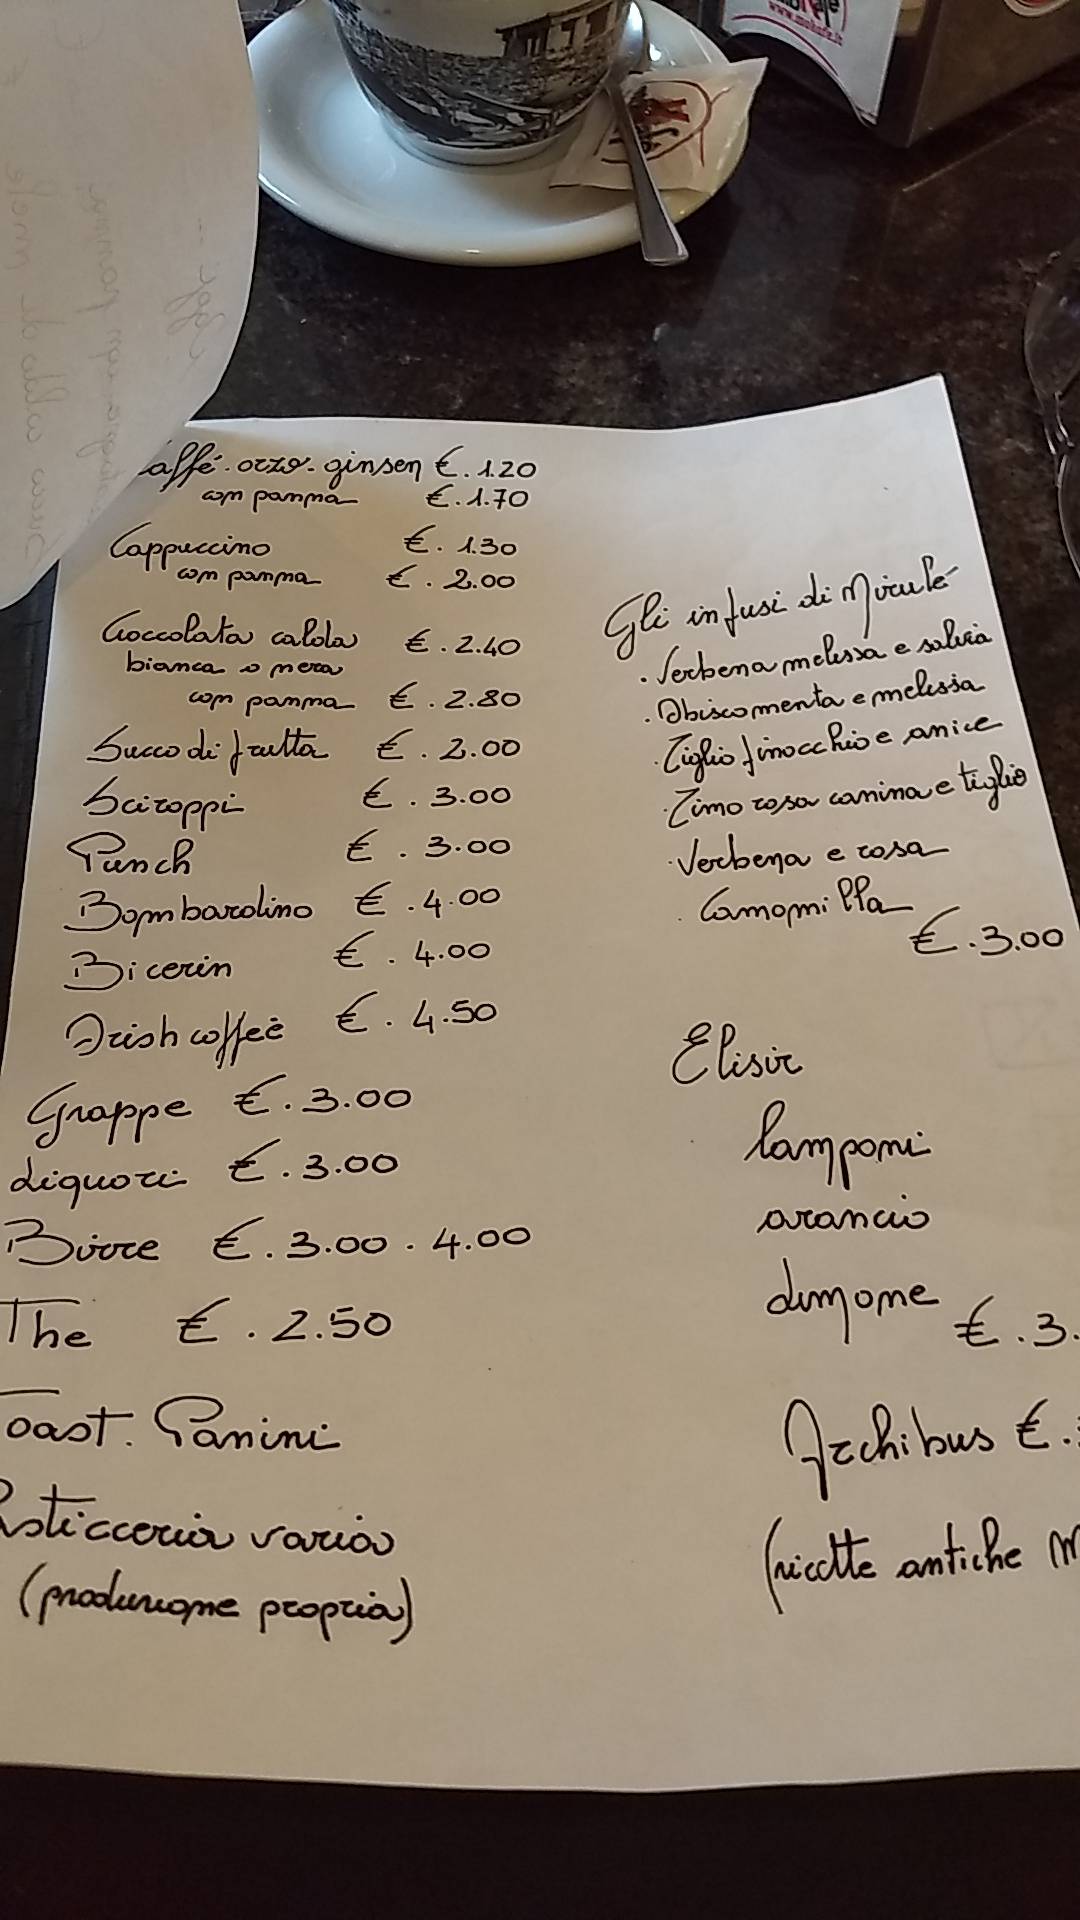 affé. orzo. ginsen €. 1.20
con panna €. 1.70
Cappuccino €. 1.30
con panna €. 2.00
Cioccolata calda €. 2.40
bianca o nera
con panna €. 2.80
Succo di frutta €. 2.00
Sciroppi €. 3.00
Punch €. 3.00
Bombardino €. 4.00
Bicerin €. 4.00
Irish coffee €. 4.50
Grappe €. 3.00
Liquori €. 3.00
Birre €. 3.00 - 4.00
The €. 2.50
oast. Panini
sticceria varia
(produzione propria)
Gli infusi di
. Verbena melissa e salvia
. Ibisco menta e melissa
. Tiglio finocchio e anice
. Timo rosa canina e tiglio
. Verbena e rosa
. Camomilla
€. 3.00
Elisir
lamponi
arancio
limone
€. 3.
Archibus €.
(ricette antiche